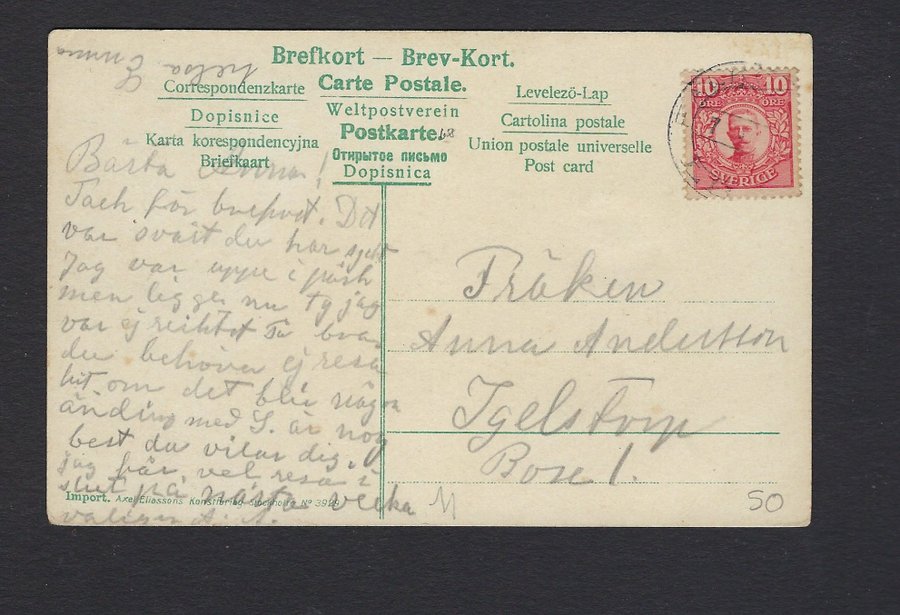 Brefkort — Brev-Kort.
Correspondenzkarte Carte Postale. Levelezö-Lap
Dopisnice Weltpostverein Cartolina postale
Karta korespondencyjna Postkarte. Union postale universelle
Briefkaart Открытое письмо Post card
Dopisnica
10 10
ÖRE ÖRE
SVERIGE
helsa
Emma
Bästa Anna!
Tack för brefvet. Det
var svårt du har
Jag var uppe i
men ligger nu ty jag
var ej
du behöver ej resa
hit om det blir någon
ändring med S. är nog
best du vilar dig.
jag får vel resa i
slut på nästa vecka
A. A.
Fröken
Anna Andersson
Igelstorp
Box 1.
Import. Axel Eliassons Konstförlag Stockholm No
50